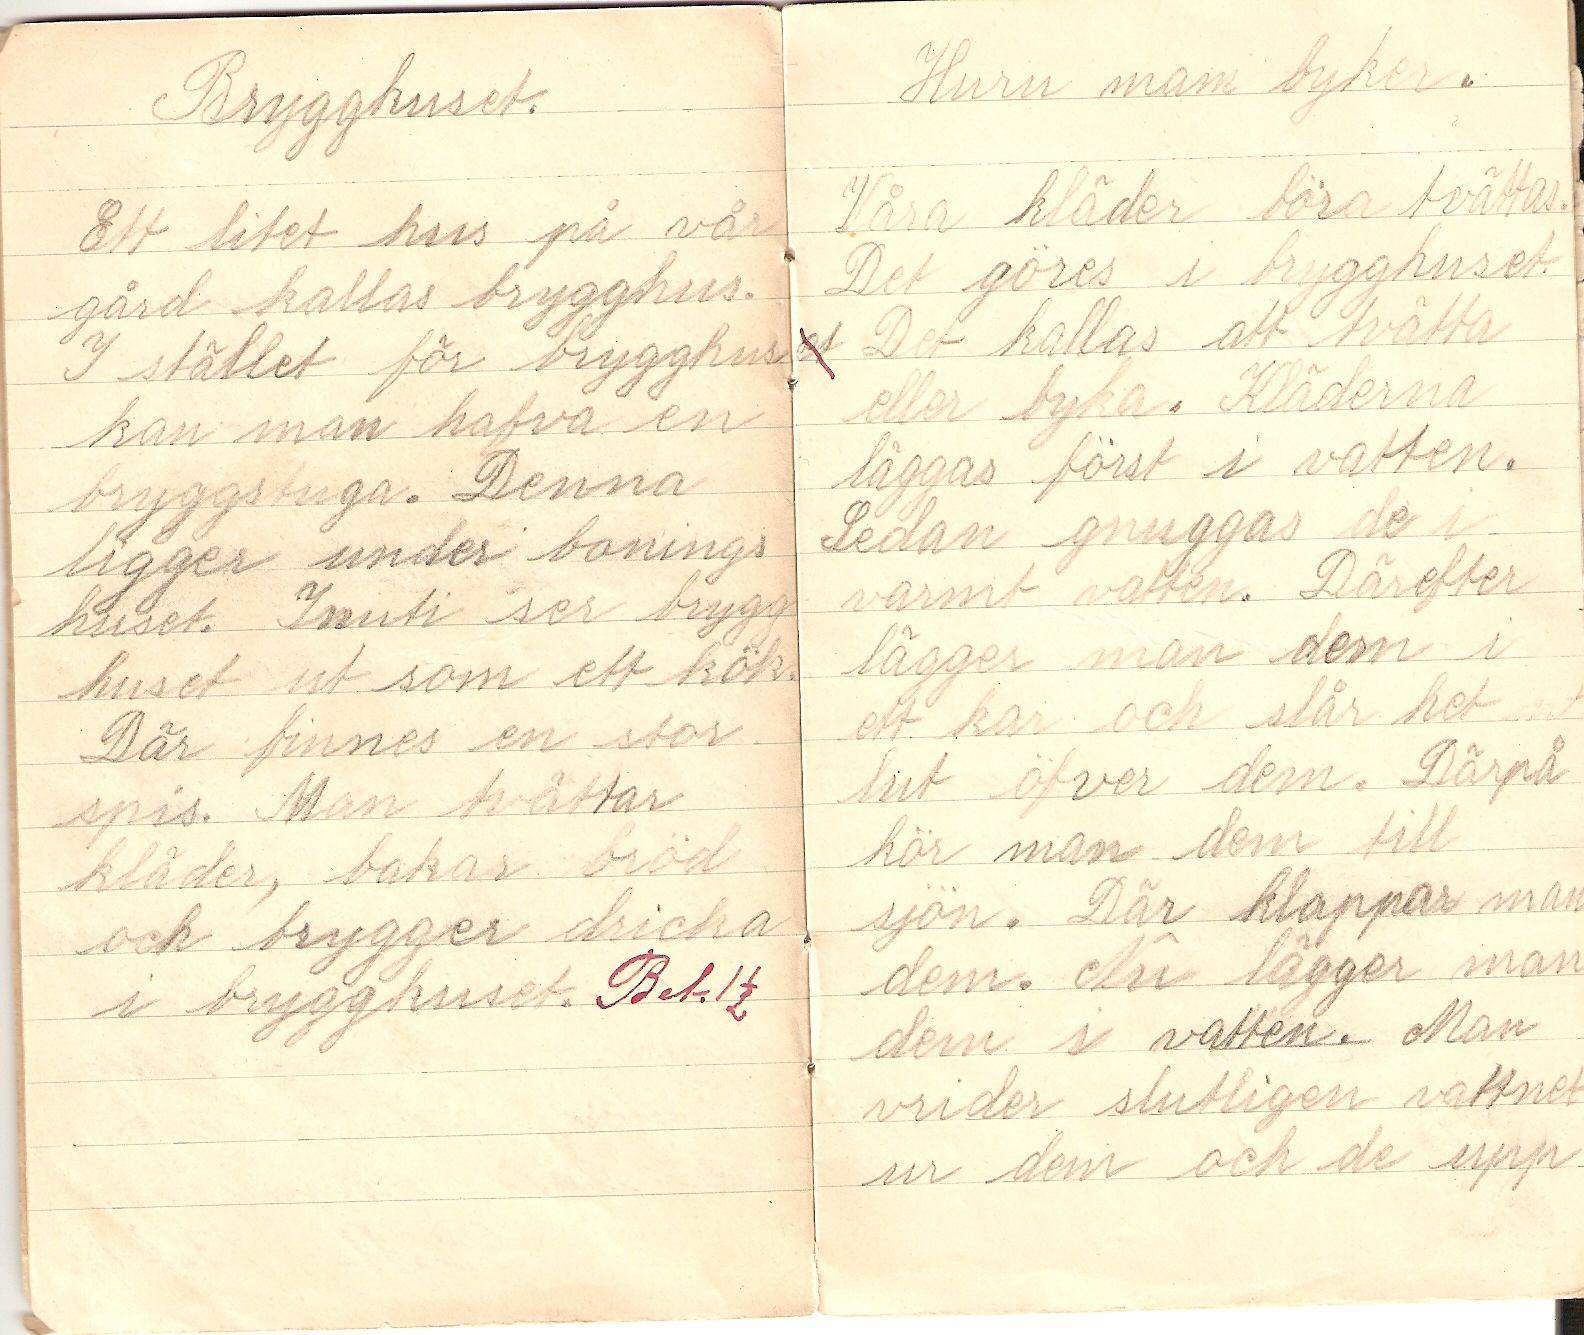 Brygghuset.
Ett litet hus på vår
gård kallas brygghus.
I stället för brygghuset
kan man hafva en
bryggstuga. Denna
ligger under bonings
huset. Inuti ser brygg
huset ut som ett kök.
Där finnes en stor
spis. Man tvättar
kläder, bakar bröd
och brygger dricka
i brygghuset. Bet. 1½
Huru man byker.
Våra kläder böra tvättas.
Det göres i brygghuset.
Det kallas att tvätta
eller byka. Kläderna
läggas först i vatten.
Sedan gnuggas de i
varmt vatten. Därefter
lägger man dem i
ett kar och slår het
lut öfver dem. Därpå
kör man dem till
sjön. Där klappar man
dem. Nu lägger man
dem i vatten. Man
vrider slutligen vattnet
ur dem och de upp